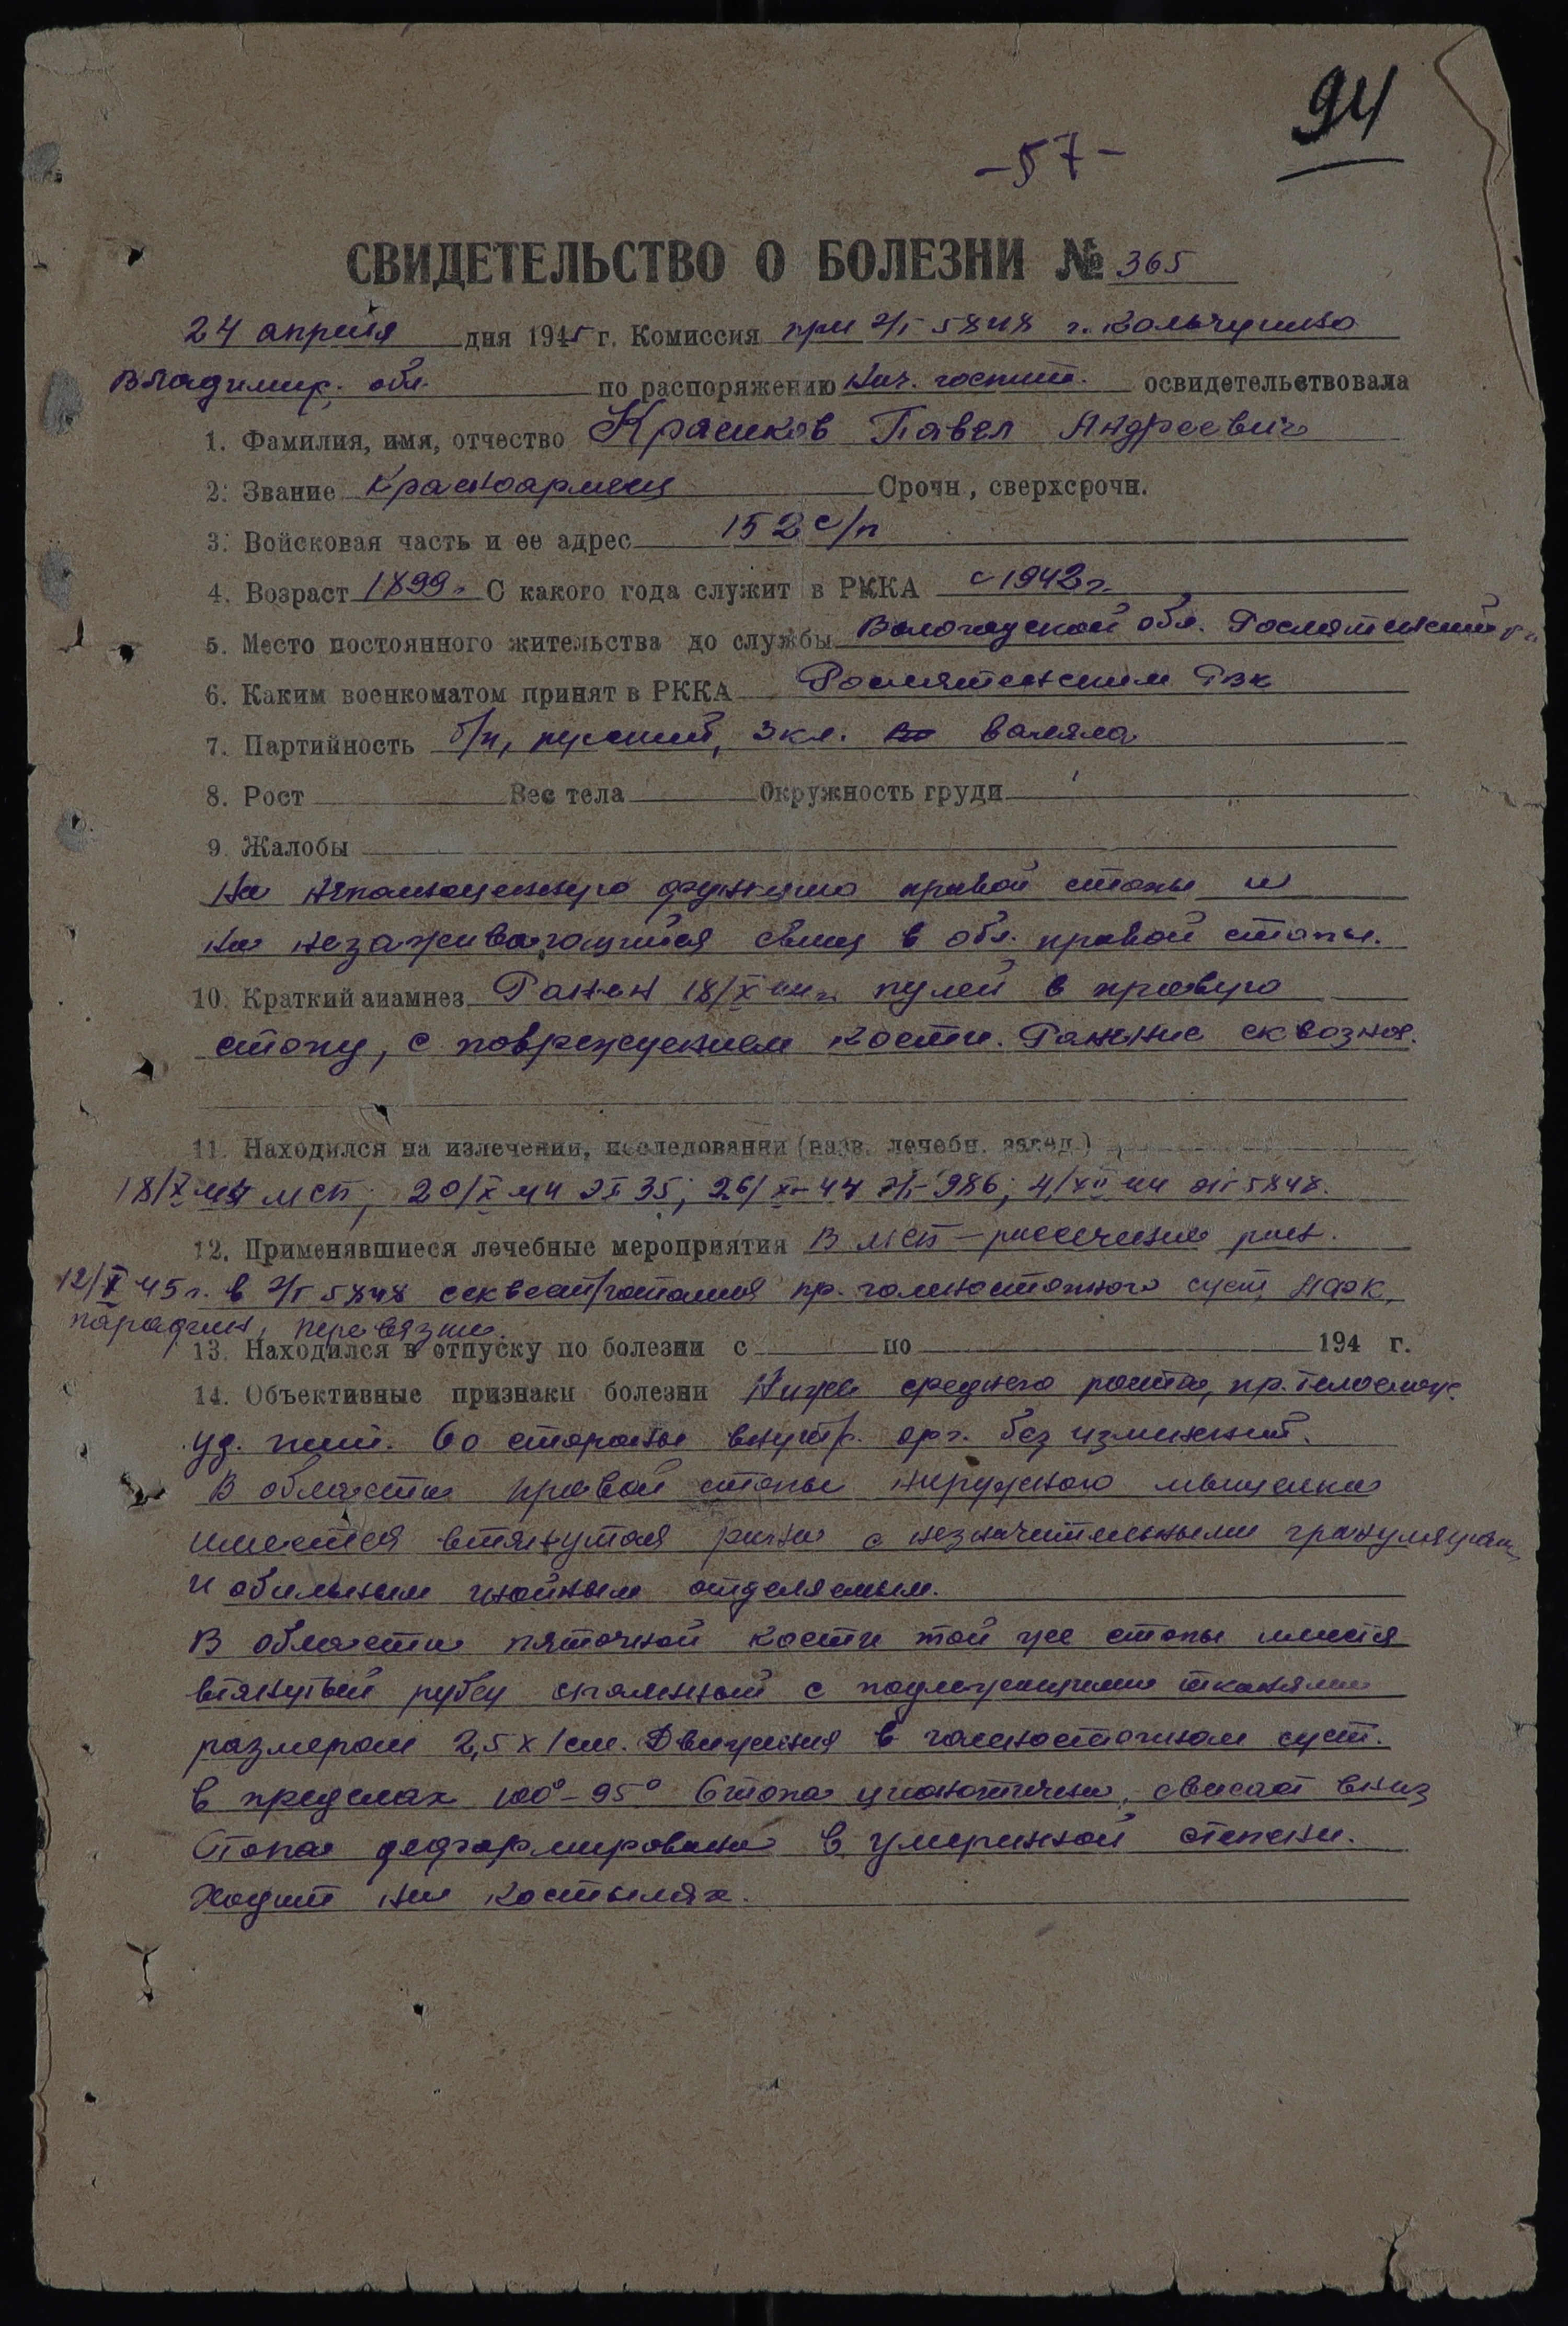 94
-57-
СВИДЕТЕЛЬСТВО О БОЛЕЗНИ № 365
24 апреля дня 1945 г. Комиссия при э/г 5848 г. Кольчугино
Владимир. обл. по распоряжению Нач. госпит. освидетельствовала
1. Фамилия, имя, отчество Красиков Павел Андреевич
2. Звание Красноармеец Срочн, сверхсрочн.
3. Войсковая часть и ее адрес 152 с/п
4. Возраст 1899г. С какого года служит в РККА с 1942г.
5. Место постоянного жительства до службы Вологодской обл. Рослятинский р-н
6. Каким военкоматом принят в РККА Рослятинским РВК
7. Партийность б/п, русский, 3 кл.
8. Рост Вес тела Окружность груди
9. Жалобы
На неполноценную функцию правой стопы и
на незаживающийся свищ в обл. правой стопы.
10. Краткий анамнез Ранен 18/X 44г. пулей в правую
стопу, с повреждением кости. Ранение сквозное.
11. Находился на излечении, исследовании (назв. лечебн. завед.)
18/X 44 МСП; 20/X 44 35; 26/XI-44 э/г 986; 4/XII 44 эг 5848.
12. Применявшиеся лечебные мероприятия В МСП – рассечение ран.
12/I 45г. в э/г 5848 пр. голеностопного суст, ЛФК,
парафин, перевязки.
13. Находился в отпуску по болезни с по 194 г.
14. Объективные признаки болезни Ниже среднего роста, пр. телослож.
уд. пит. Со стороны внутр. орг. без изменений.
В области правой стопы наружного мыщелка
имеется втянутая рана с незначительными грануляциями
и обильным гнойным отделяемым.
В области пяточной кости той же стопы имеется
втянутый рубец спаянный с подлежащими тканями
размером 2,5 х 1 см. Движения в голеностопном суст.
в пределах 100°-95° Стопа цианотична, свисает вниз
Стопа деформирована в умеренной степени.
Ходит на костылях.